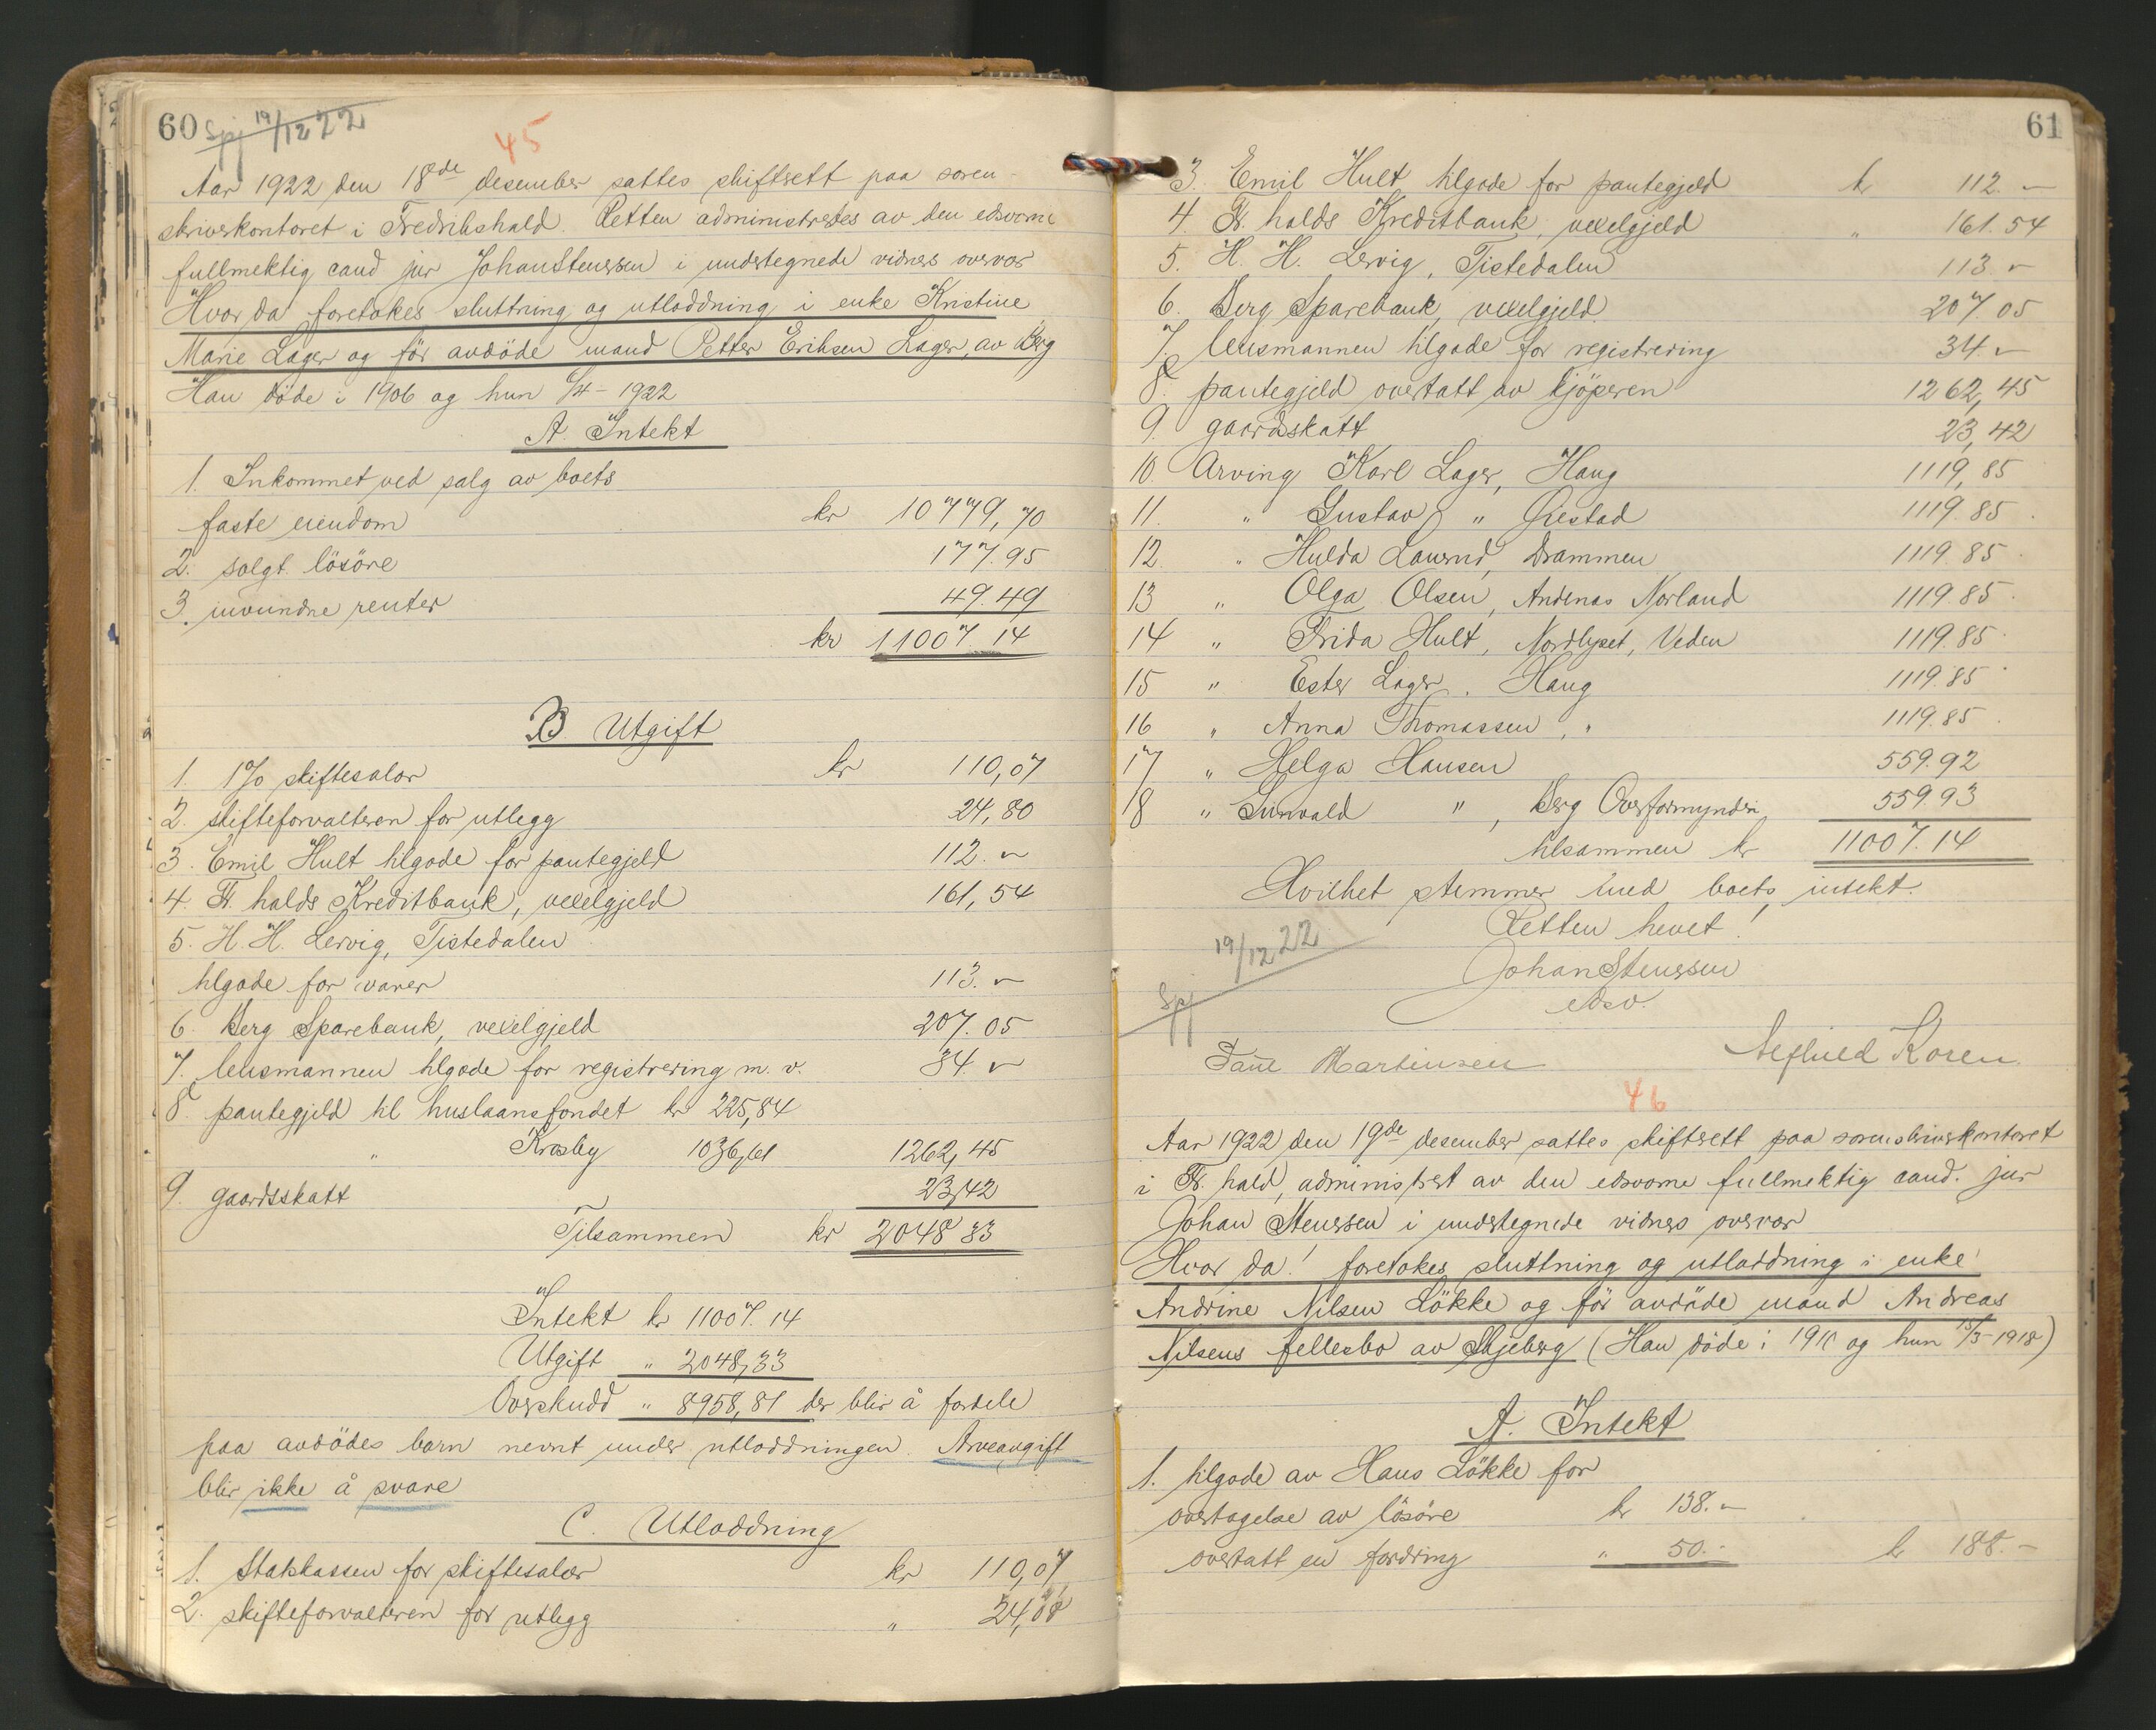 60 Spj 19/12 22
45
Aar 1922 den 18de desember sattes skiftsrett paa soren-
skriverkontoret i Fredrikshald. Retten administrertes av den edsvorne
fullmektig cand jur Johan Stenersen i undertegnede vidners overvær
Hvor da foretokes sluttning og utloddning i enke Kristine
Marie Lager og før avdöde mand Petter Eriksen Lager, av Berg
Han döde i 1906 og hun 6/4 - 1922
A. Intekt
1. Inkommet ved salg av boets
faste eiendom kr 10779,70
2. solgt lösöre 177.95
3. invundne renter 49.49
kr 11007.14
B Utgift
1. 1% skiftesalær kr 110,07
2. skifteforvalteren for utlegg 24,80
3. Emil Hult tilgode for pantegjeld 112.-
4. Fr. halds Kreditbank, vexelgjeld 161,54
5. H. H. Lervig, Tistedalen
tilgode for varer 113.-
6. Berg Sparebank, vexelgjeld 207.05
7. lensmannen tilgode for registrering m. v. 34.-
8. pantegjeld til huslaansfondet kr 225,84
" Krosby 1036,61 1262,45
9. gaardsskatt 23,42
Tilsammen kr 2048 33
Intekt kr 11007.14
Utgift " 2048,33
Overskudd " 8958,81 der blir å fordele
paa avdödes barn nevnt under utloddningen. Arveavgift
blir ikke å svare
C. Utloddning
1. Statskassen for skiftesalær kr 110,07
2. skifteforvalteren for utlegg " 24,80
61
3. Emil Hult tilgode for pantegjeld kr 112.-
4. Fr. halds Kreditbank, vexelgjeld " 161.54
5. H. H. Lervig, Tistedalen 113.-
6. Berg Sparebank, vexelgjeld 207.05
7. lensmannen tilgode for registrering 34.-
8. pantegjeld overtatt av kjöperen 1262,45
9. gaardsskatt 23,42
10. Arving Karl Lager, Haug 1119,85
11. " Gustav " Örestad 1119.85
12. " Hulda Laurud, Drammen 1119.85
13 " Olga Olsen, Andenas Norland 1119.85
14 " Frida Hult, Nordlyset, Veden 1119.85
15 " Ester Lager, Haug 1119.85
16 " Anna Thomassen, " 1119.85
17 " Helga Hansen 559.92
18 " Gunvald ", Berg Overformynderi 559.93
tilsammen kr 11007.14
Hvilket stemmer med boets intekt.
Retten hevet!
Spj 19/12 22
Johan Stenersen
edsv.
Martinsen Koren
46
Aar 1922 den 19de desember sattes skiftsrett paa sorenskriverkontoret
i Fr. hald, administrert av den edsvorne fullmektig cand. jur
Johan Stenersen i undertegnede vidners overvær
Hvor da! foretokes sluttning og utloddning i enke
Andrine Nilsen Lökke og för avdöde mand Andreas
Nilsens fellesbo av Skjeberg (Han döde i 1910 og hun 15/3-1918)
A. Intekt
1. tilgode av Hans Lökke for
overtagelse av lösöre kr 138.-
overtatt en fordring " 50.- kr 188.-